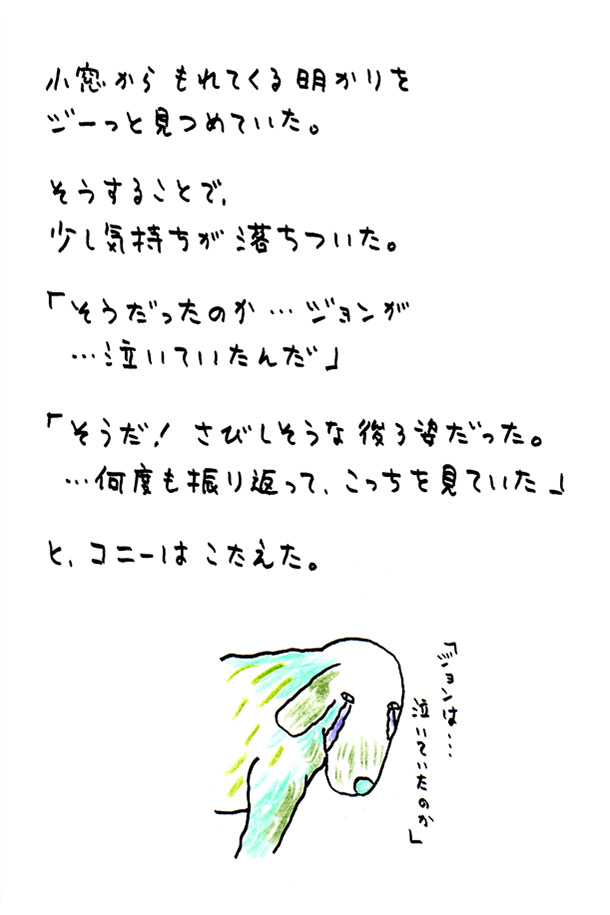 小窓から もれてくる 明かりを
ジーっと 見つめていた。
そうすることで、
少し気持ちが 落ちついた。
「そうだったのか … ジョンが
…泣いていたんだ」
「そうだ! さびしそうな 後ろ姿だった。
…何度も振り返って、こっちを見ていた」
と、コニーは こたえた。
「ジョンは…
泣いていたのか」